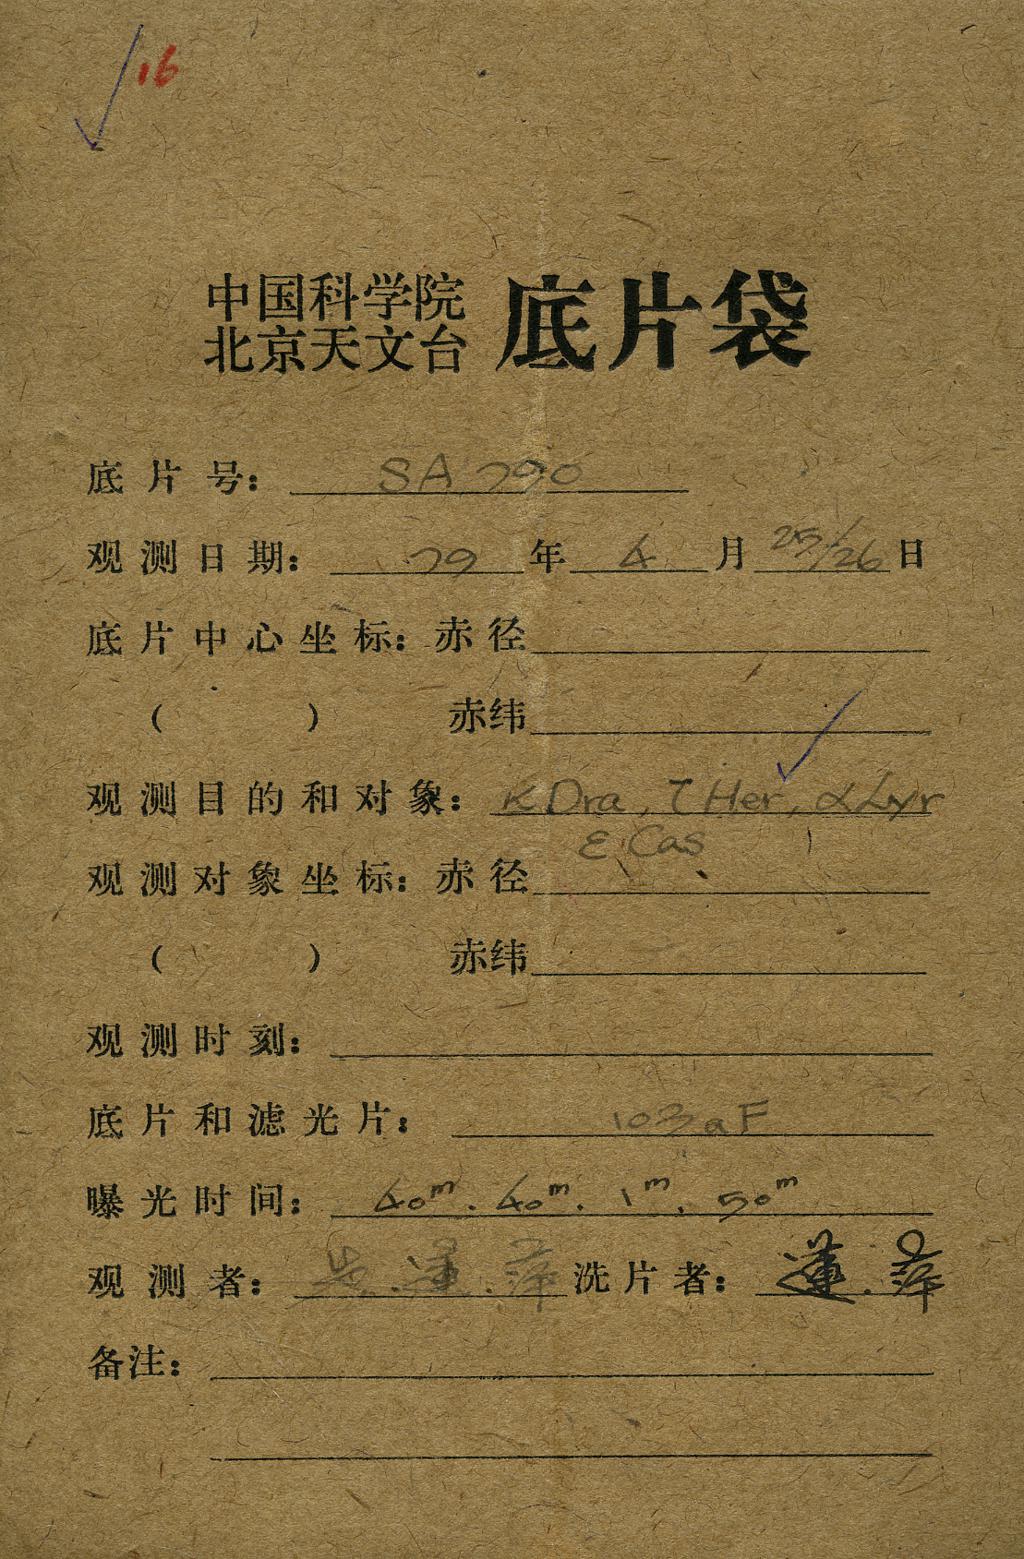 16
中国科学院
北京天文台 底片袋
底片号： SA 790
观测日期： 79 年 4 月 25/26 日
底片中心坐标：赤径
（ ） 赤纬
观测目的和对象： κ Dra, τ Her, α Lyr
ε Cas
观测对象坐标：赤径
（ ） 赤纬
观测时刻：
底片和滤光片： 103aF
曝光时间： 40m. 40m. 1m. 50m
观测者： 蓮.萍 洗片者： 蓮.萍
备注：